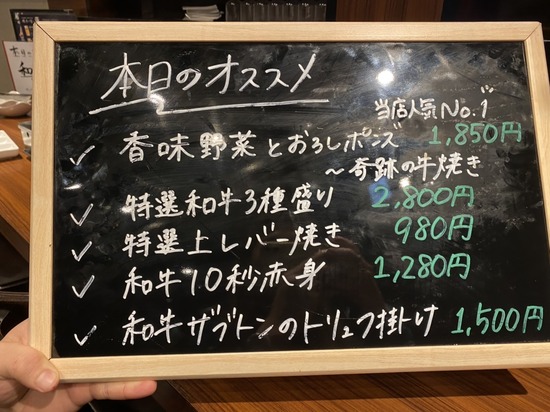 本日のオススメ
当店人気No.1
香味野菜とおろしポンズ 1,850円
〜奇跡の牛焼き
特選和牛3種盛り 2,800円
特選上レバー焼き 980円
和牛10秒赤身 1,280円
和牛ザブトンのトリュフ掛け 1,500円